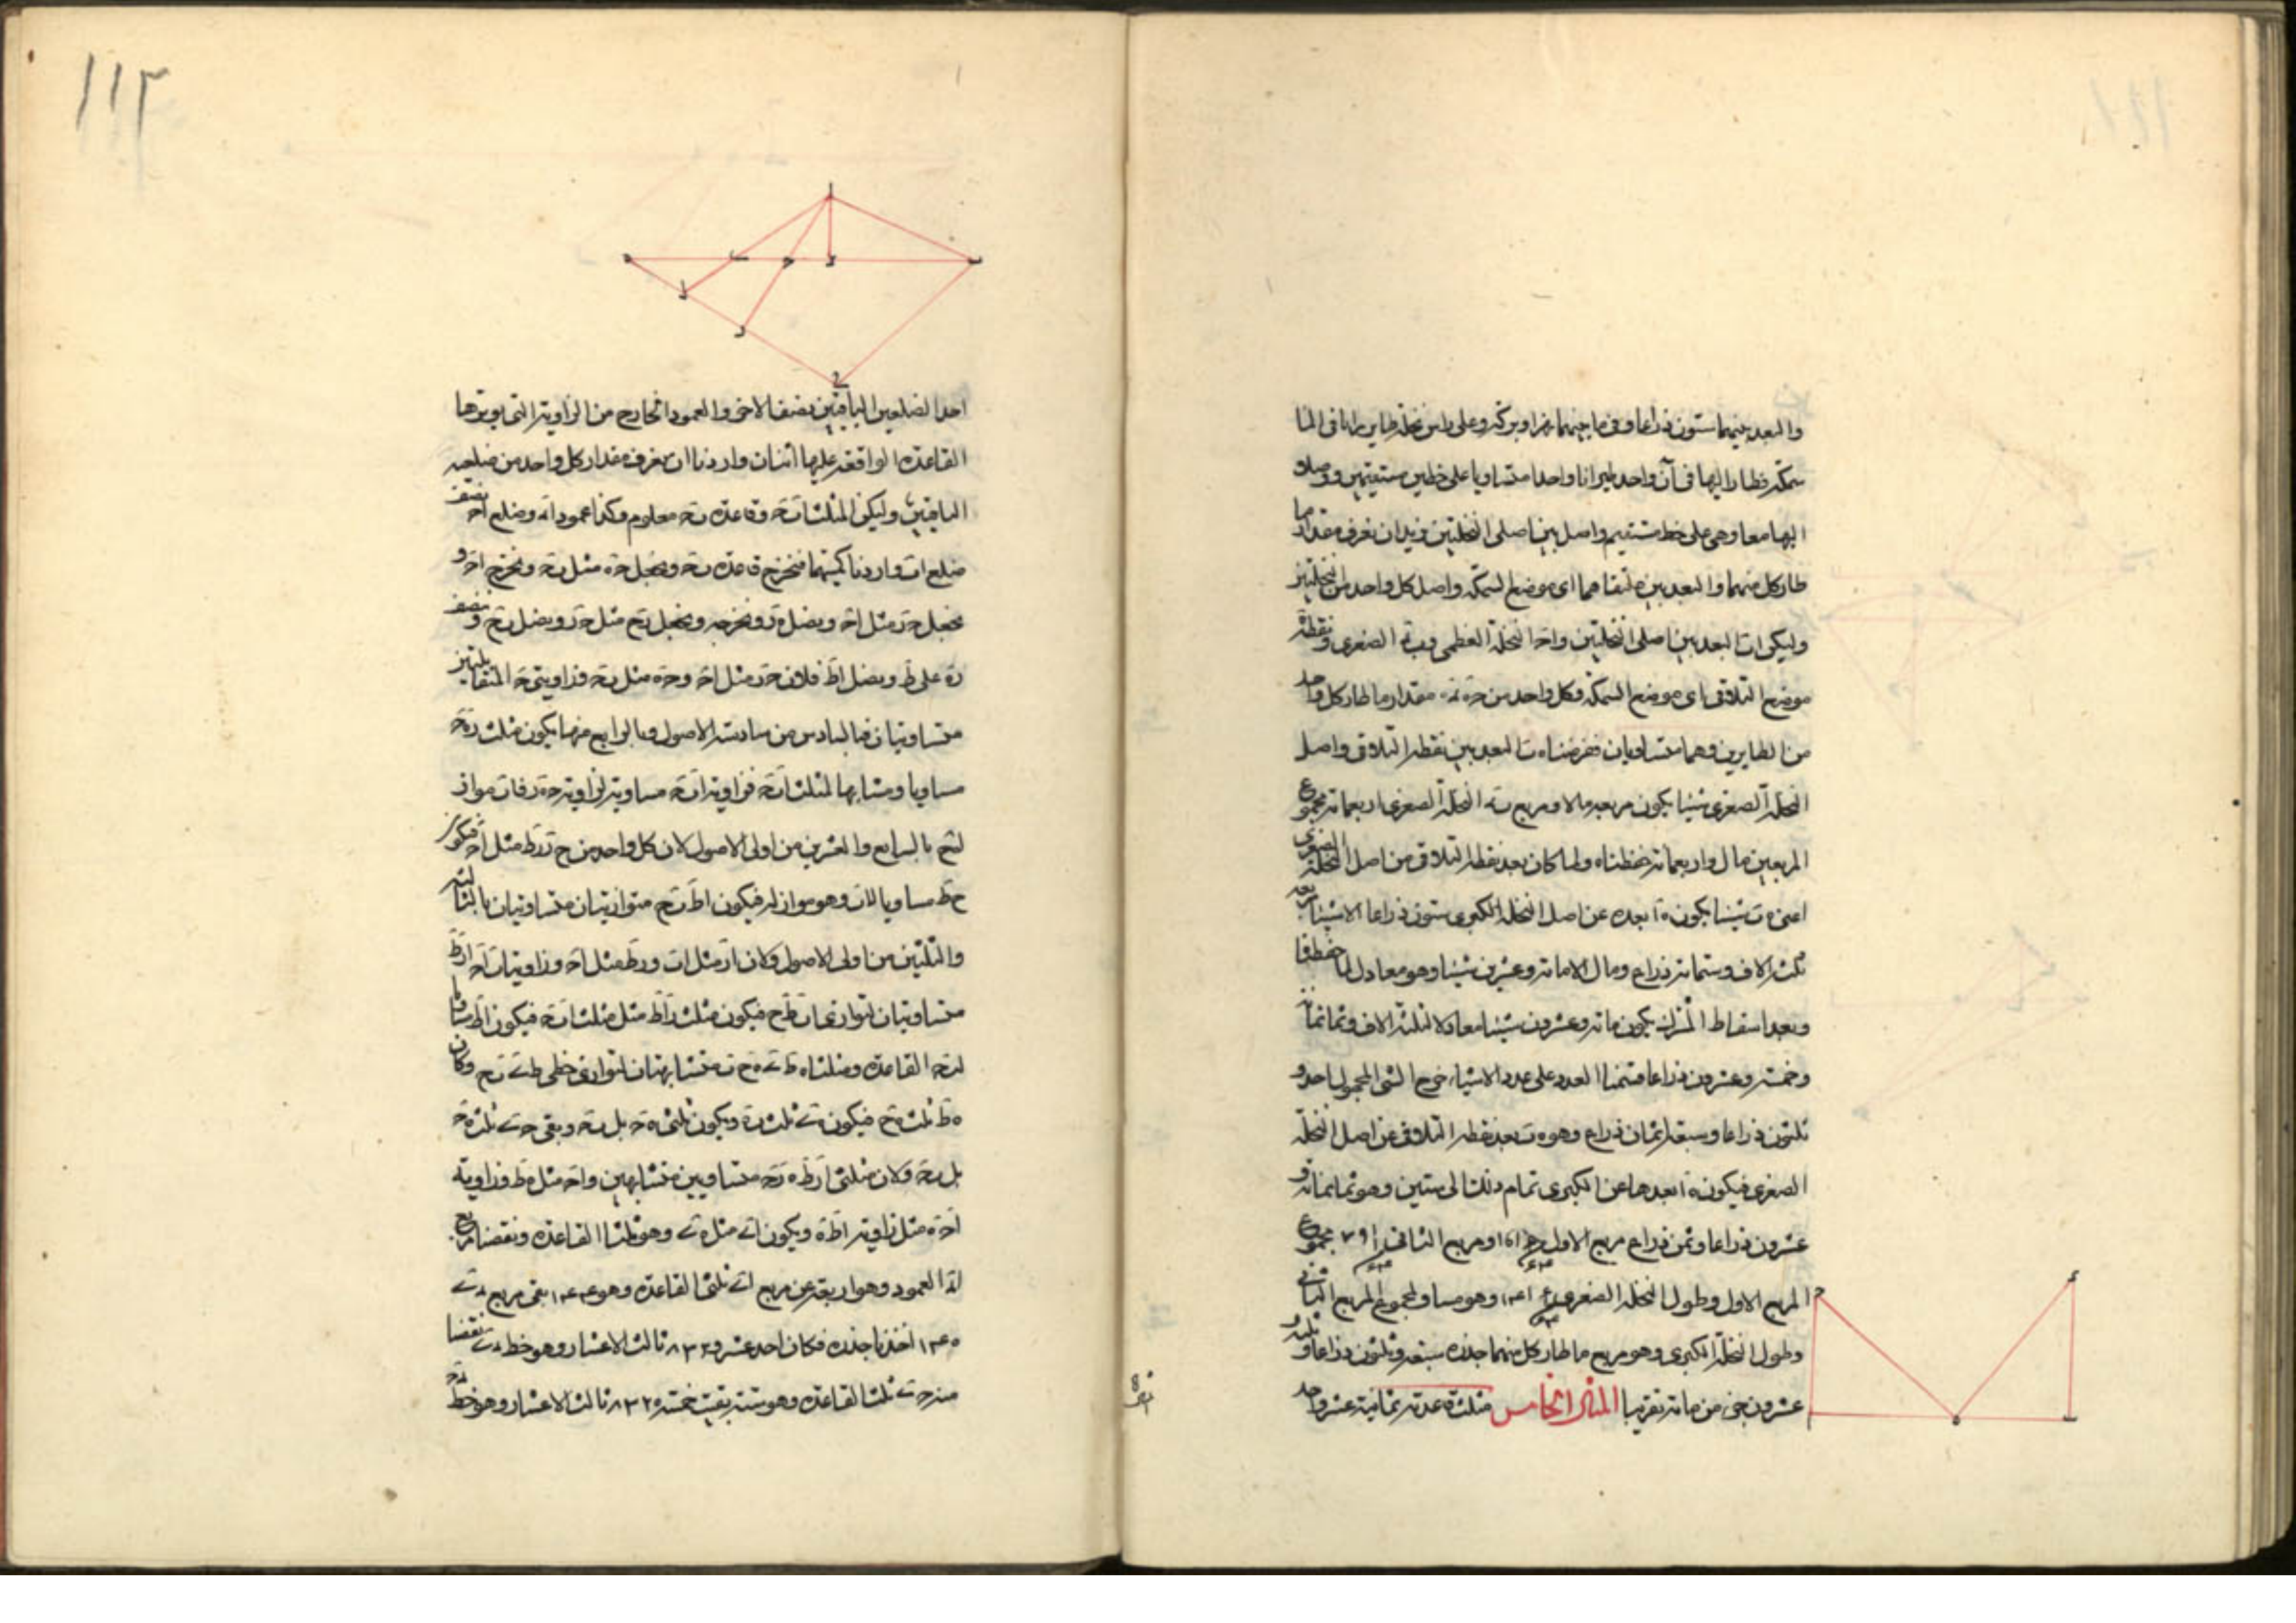 والبعد بينهما ستون ذراعا وفيما بينهما نهر او بركة وعلى راس نخلة طاير رايا في الما
سمكة فطارا اليها في آن واحد طيرانا واحدا متساويا على خطين مستقيمين ووصلا
اليها معا وهي على خط مستقيم واصل بين اصلي النخلتين نريد ان نعرف مقدار ما
طار كل منهما والبعد بين ملتقاهما اى موضع السمكة واصل كل واحد من النخلتين
وليكن اب البعد بين اصلي النخلتين واح النخلة العظمى وب الصغرى ونقطة ه
موضع التلاقي اى موضع السمكة وكل واحد من حه مقدار ما طار كل واحد
من الطايرين وهما متساويان ففرضنا ه ب البعد بين نقطة التلاقي واصل
النخلة الصغرى شيئا يكون مربعه مالا ومربع النخلة الصغرى اربعمائة مجموع
المربعين مال واربعمائة حفظناه ولما كان بعد نقطة التلاقي من اصل النخلة الصغرى
اعنى ه ب شيئا يكون ه ا بعده عن اصل النخلة الكبرى ستون ذراعا الا شيئا
ثلثة الاف وستمائة ذراع ومال الا مائة وعشرين شيئا وهو معادل لما حفظنا
وبعد اسقاط المشترك يكون مائة وعشرون شيئا معادلا لثلثة الاف وثمانمائة
وخمسة وعشرون ذراعا قسمنا العدد على عدد الاشياء خرج الشى المجهول احد و
ثلثون ذراعا وسبعة اثمان ذراع وهو ه ب بعد نقطة التلاقي عن اصل النخلة
الصغرى فيكون ه ا بعدها عن الكبرى تمام ذلك الى ستين وهو ثمانية و
عشرون ذراعا وثمن ذراع مربع الاول ومربع الثانى ٧٩١ مجموع
المربع الاول وطول النخلة الصغرى وهو مساو لمجموع المربع الثانى
وطول النخلة الكبرى وهو مربع ما طار كل منهما جذره سبعة وثلثون ذراعا و
عشرون جزء من مائة تقريبا المثال الخامس مثلث قاعدته ثمانية عشر واحد
احد الضلعين الباقيين نصف الاخر والعمود الخارج من الزاوية التى يوترها
القاعدة الواقعة عليها اثنان واردنا ان نعرف مقدار كل واحد من ضلعيه
الباقيين وليكن المثلث ا ب ح وقاعدة ب ح معلوم وكذا عمود ا ء وضلع ا ح نصف
ضلع ا ب واردنا كميتهما فنخرج قاعدة ب ح ونجعل ح ه مثل ب ح ونخرج ا ح و
نجعل ح ر مثل ا ح ونصل ه ر ونخرجه ونجعل ر ح مثل ه ر ونصل ب ح وننصف
ر ه على ط ونصل ا ط فلان ح ر مثل ا ح و ح ه مثل ب ح فزاويتى ح المتقابلتين
متساويتان فبالسادس من سادسة الاصول وبالرابع منها يكون مثلث ر ه ح
مساويا ومشابها لمثلث ا ب ح فزاوية ا ب ح مساوية لزاوية ح ه ر فاب مواز
له ح بالسابع والعشرين من اولى الاصول لان كل واحد من ح ر ر ط مثل ا ح فيكون
ح ط مساويا لاب وهو مواز له فيكون ا ط ب ح متوازيتان متساويتان بالثالثة
والثلثين من اولى الاصول ولان ا ر مثل ا ب و ر ط مثل ا ح وزاويتا ب ا ح ا ر ط
متساويتان لتوازى ا ب ط ح فيكون مثلث ر ا ط مثل مثلث ا ب ح فيكون ا ط مساويا
ل ب ح القاعدة ومثلثا ه ط ى ه ح ب متشابهتان لتوازى خطى ط ى ب ح وكان
ه ط ثلث ه ح فيكون ه ى ثلث ه ب ويكون ثلثى ه ح بل ب ح وبقى ح ى ثلث ه ح
بل ب ح ولان مثلثى ا ر ط ه ر ح متساويين متشابهين وا ح مثل ه ط فزاوية
ا ح ه مثل زاوية ا ط ه ويكون ا ى مثل ه ى وهو ثلثا القاعدة ونقصنا مربع
ا ء العمود وهو اربعة عن مربع ا ى ثلثى القاعدة وهو ١٤٤ بقى مربع ء ى
١٤٠ اخذنا جذره فكان احد عشر و ٨٣٢ ثالث الاعشار وهو خط ء ى نقصنا
منه ح ى ثلث القاعدة وهو ستة بقيت خمسة و ٨٣٢ ثالث الاعشار وهو خط ء ح